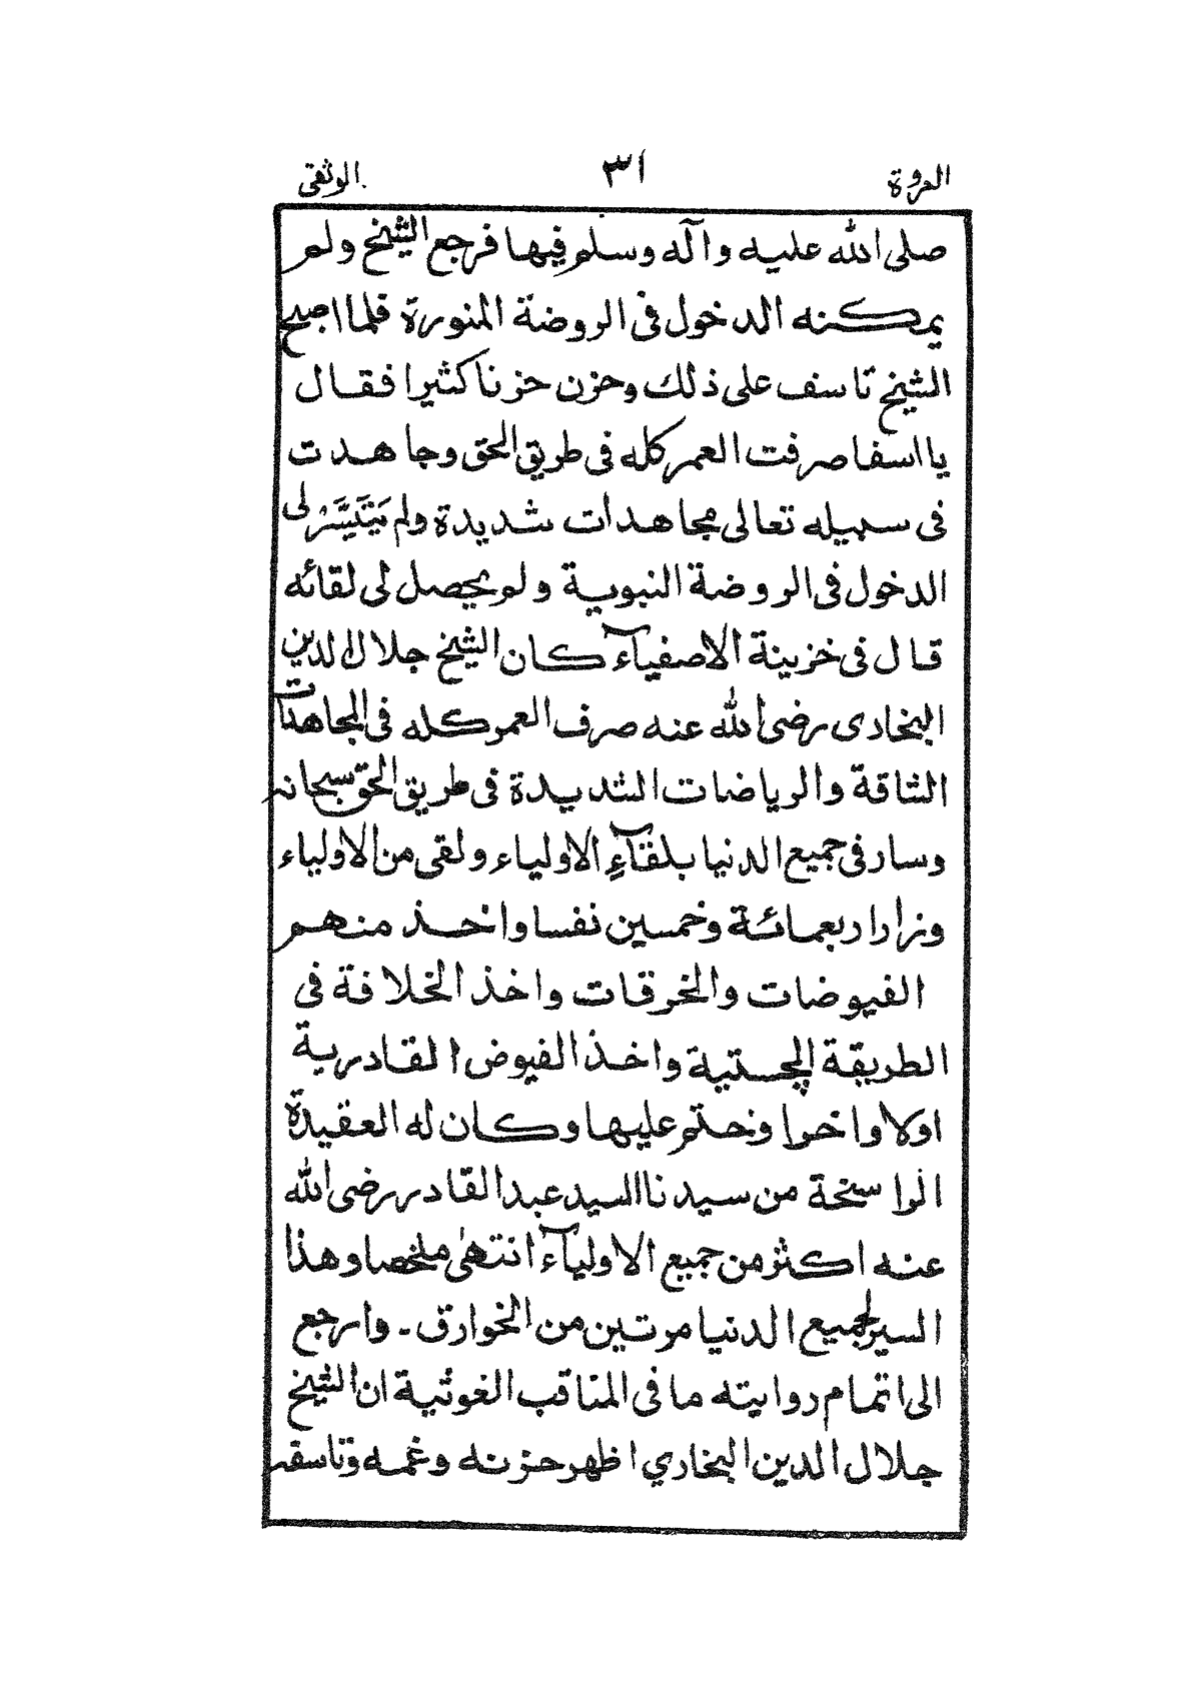 العروة ٣١ الوثقى
صلى الله عليه وآله وسلم فيها فرجع الشيخ ولم
يمكنه الدخول فى الروضة المنورة فلما اصبح
الشيخ تاسف على ذلك وحزن حزنا كثيرا فقال
يا اسفا صرفت العمر كله فى طريق الحق وجاهدت
فى سبيله تعالى مجاهدات شديدة ولم يَتَيَسَّرْ لى
الدخول فى الروضة النبوية ولم يحصل لى لقائه
قال فى خزينة الاصفيآء كان الشيخ جلال الدين
البخارى رضى الله عنه صرف العمر كله فى المجاهدات
الشاقة والرياضات الشديدة فى طريق الحق سبحانه
وسار فى جميع الدنيا بلقآءِ الاولياء ولقى من الاولياء
وزار اربعمائة وخمسين نفسا واخذ منهم
الفيوضات والخرقات واخذ الخلافة فى
الطريقة الچستية واخذ الفيوض القادرية
اولا واخرا وختم عليها وكان له العقيدة
الراسخة من سيدنا السيد عبد القادر رضى الله
عنه اكثر من جميع الاوليآء انتهى ملخصا وهذا
السير لجميع الدنيا مرتين من الخوارق - وارجع
الى اتمام روايته ما فى المناقب الغوثية ان الشيخ
جلال الدين البخاري اظهر حزنه وغمه وتاسفه